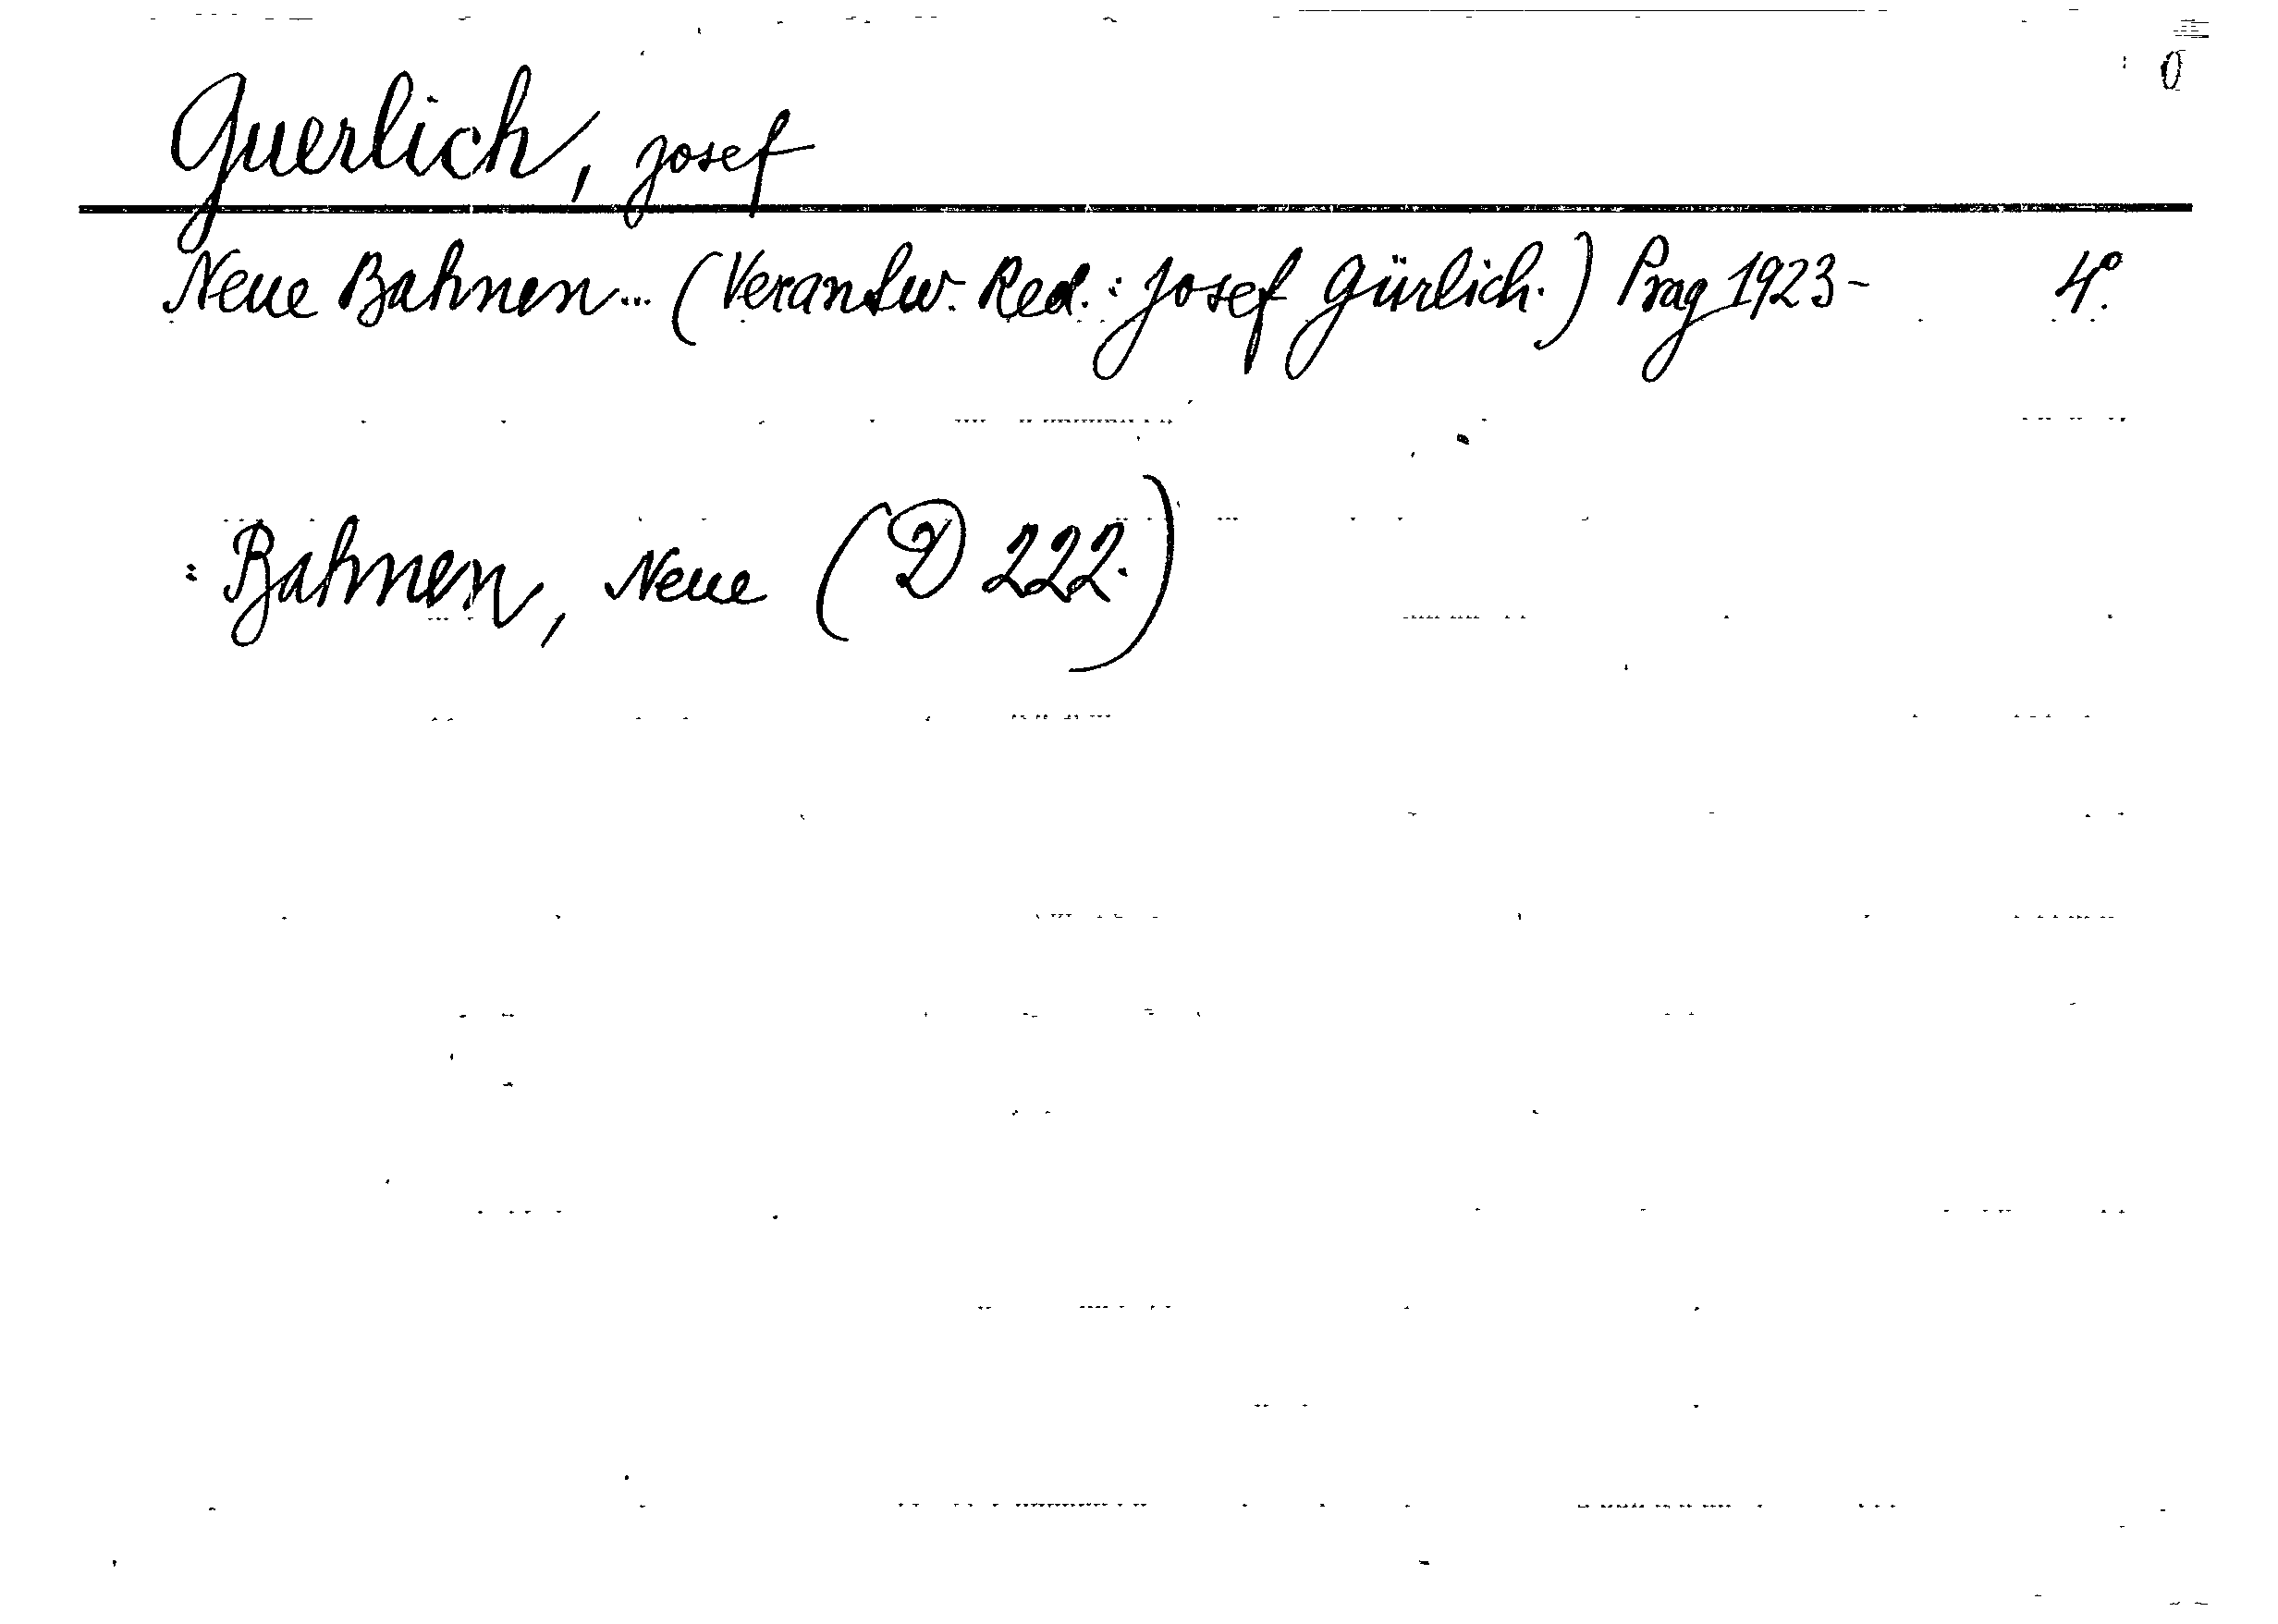 0
Guerlich, Josef
Neue Bahnen... (Verantw. Red.: Josef Gürlich.) Prag 1923- 4°.
: Bahnen, Neue (D 222.)